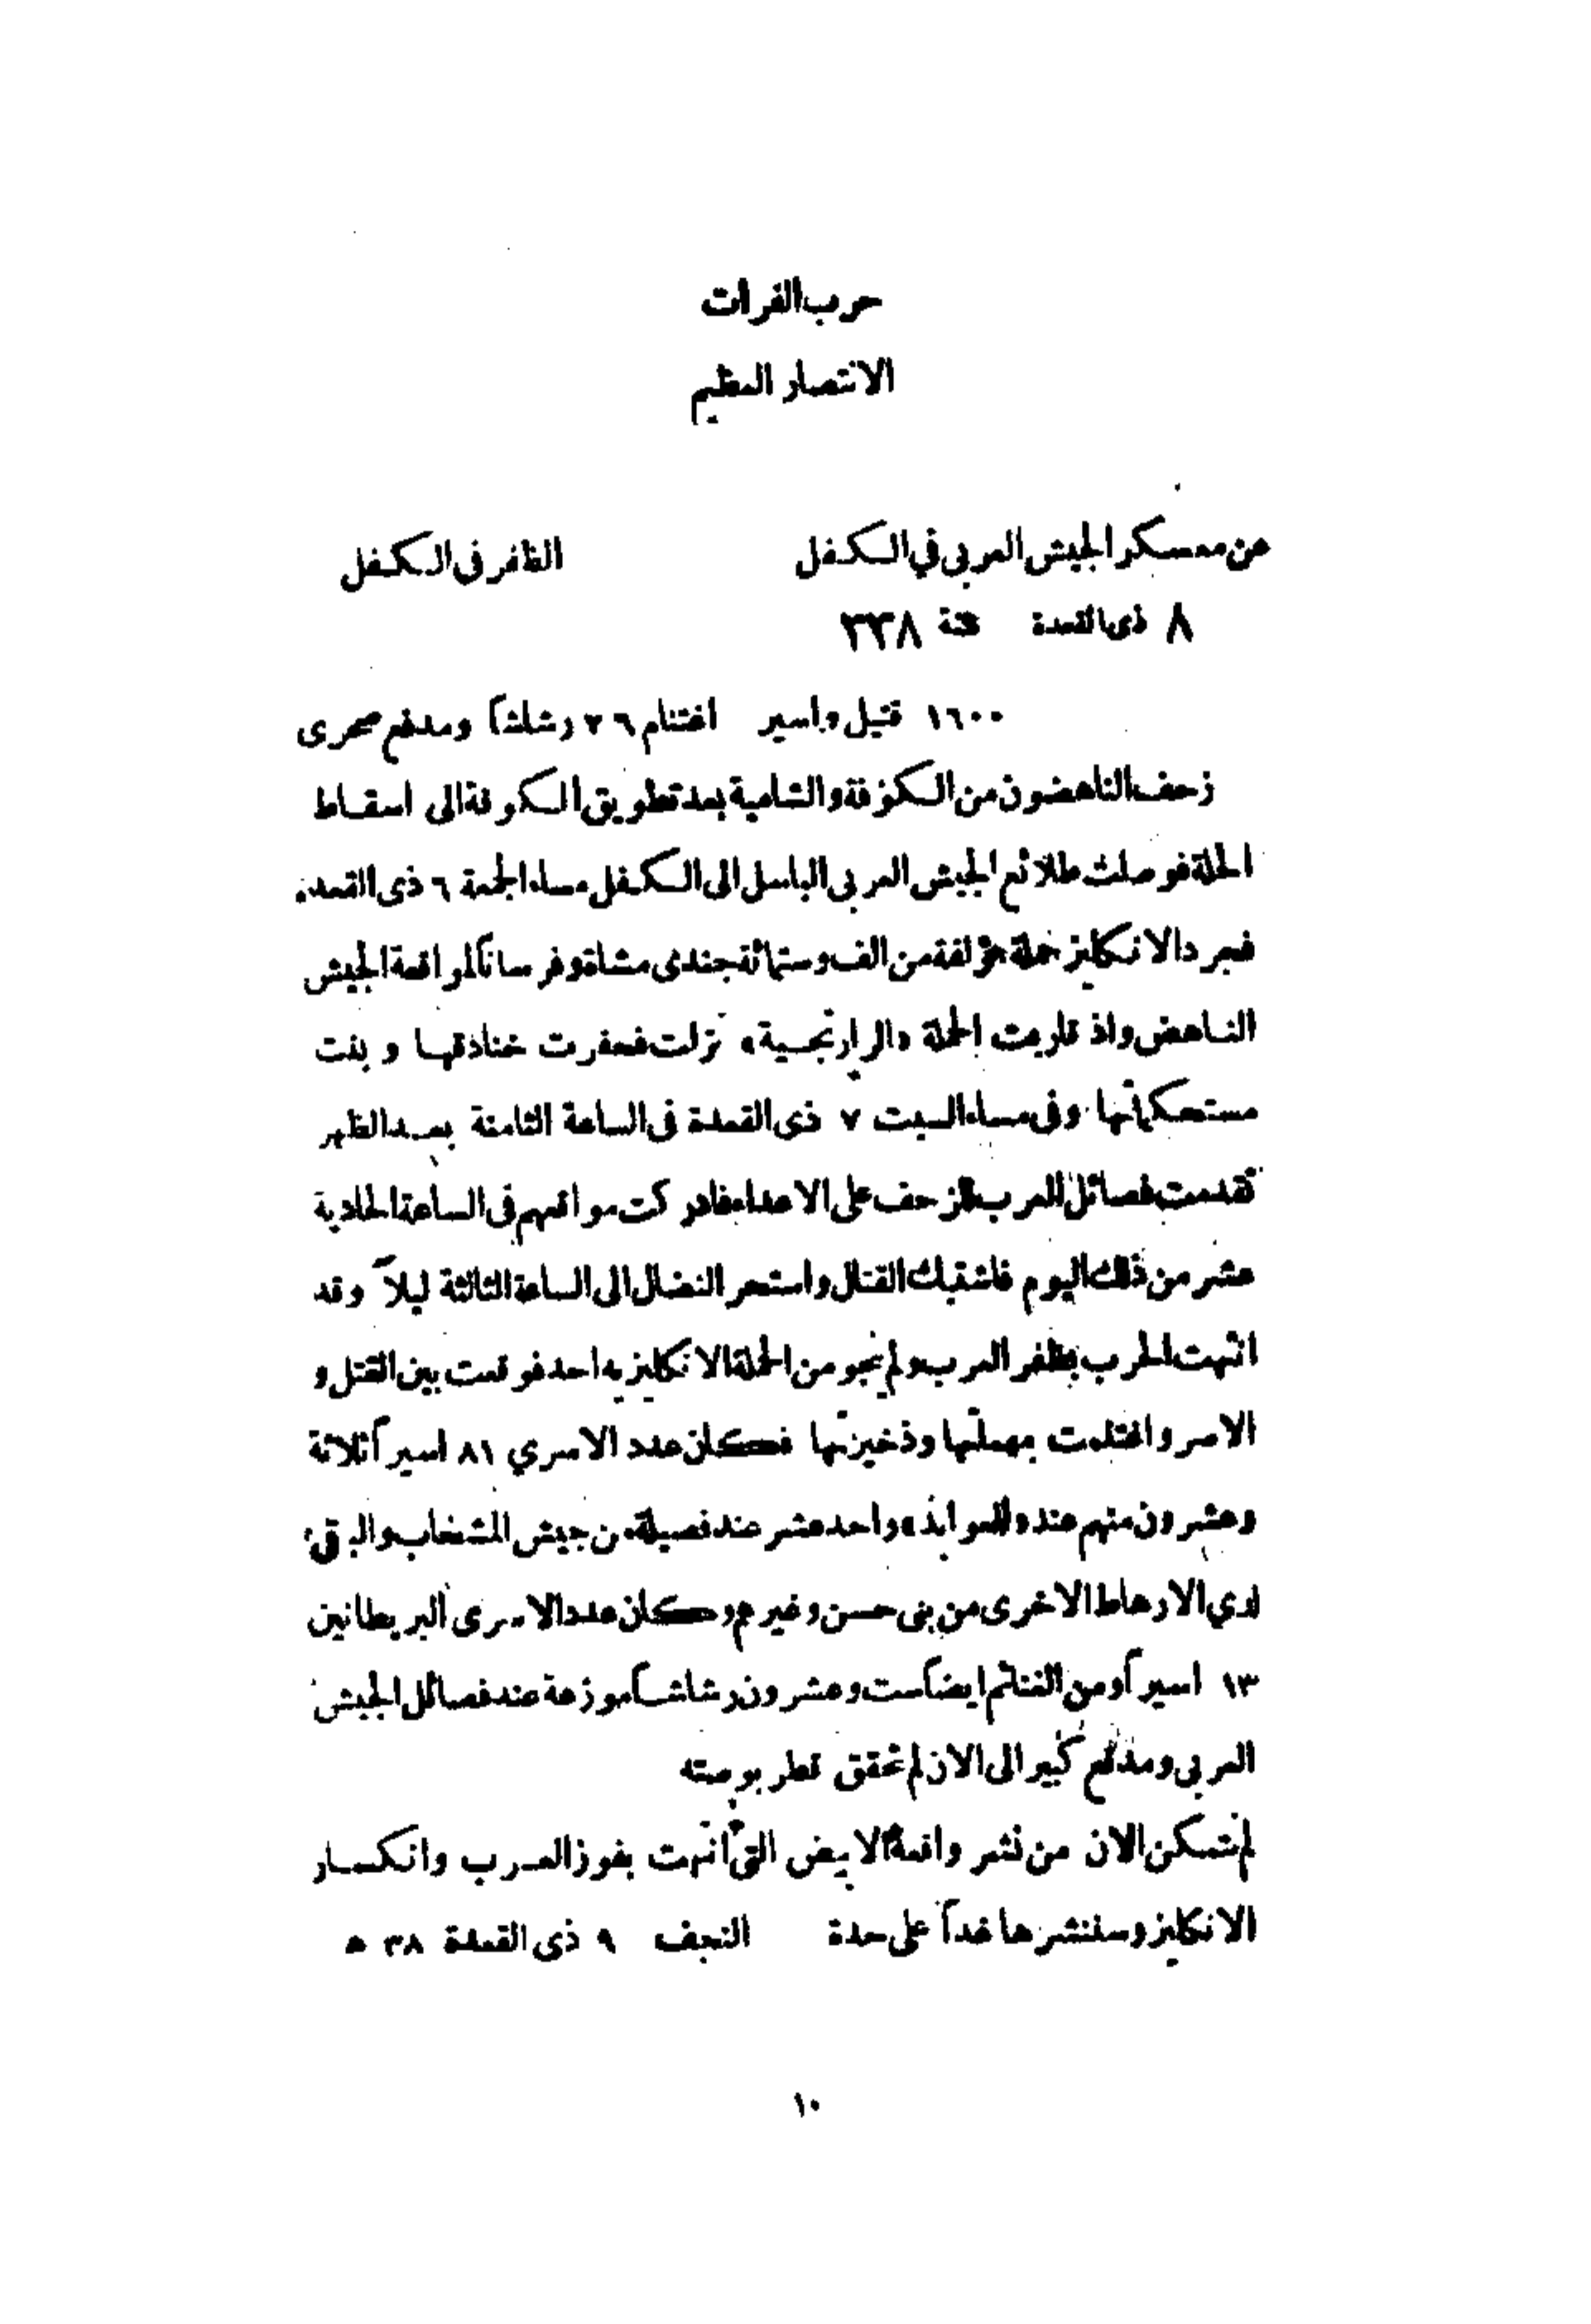 حرب الفرات
الانتصار العظيم
عن معسكر الجيش العربي في الكفل الظافر في الكفل
٨ ذي القعدة سنة ٣٣٨
١٦٠٠ قتيل واسير اغتنام ٢٦ رشاشاً ومدفع صحرى
زحف الناهضون من الكوفة والشامية بعد تطويق الكوفة الى اسقاط
الحلة فوصلت طلائع الجيش العربي الباسل الى الكفل مساء الجمعة ٦ ذى القعدة
فجرد الانكليز حملة مؤلفة من الف وستمائة جندى مشاة وفرساناً لمواقعة الجيش
الناهض واذ قاربت الحملة «الرارنجية» نزلت فحفرت خنادقها و بنت
مستحكماتها وفى مساء السبت ٧ ذى القعدة فى الساعة الثامنة بعد الظهر
تقدمت فصائل العرب للزحف على الاعداء فادركت مواقعهم فى الساعة الحادية
عشر من ذلك اليوم فاشتبك القتال واستمر النضال الى الساعة الثالثة ليلاً وقد
انتهت الحرب بظفر العرب ولم ينجو من الحملة الانكليزيه احد فوقعت بين القتل و
الاسر واغتنمت مهماتها وذخيرتها فكان عدد الاسري ٨١ اسيراً ثلاثة
وعشرون منهم عند «العوابد» واحد عشر عند فصيلة من جيش المشخاب والباقي
لدي الارهاط الاخرى من بنى حسن وغيرهم وكان عدد الاسرى البريطانين
١٣ اسيراً ومن الغنائم ايضاً ست وعشرون رشاشاً موزعة عند فصائل الجيش
العربي ومدفع كبير الى الان لم تحقق قطر بوصته
لم نتمكن الان من نشر واقعة الابيض التى انتهت بفوز العرب وانكسار
الانكليز وسننشرها غداً على حدة النجف ٩ ذى القعدة ٣٨ ه
١٠